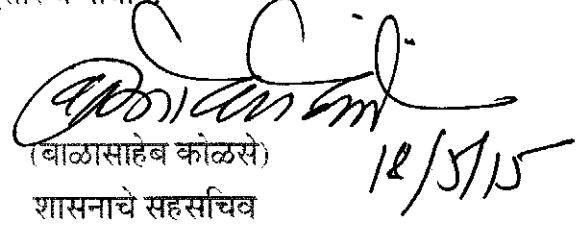 (बाळासाहेब कोळसे)
18/5/15
शासनाचे सहसचिव